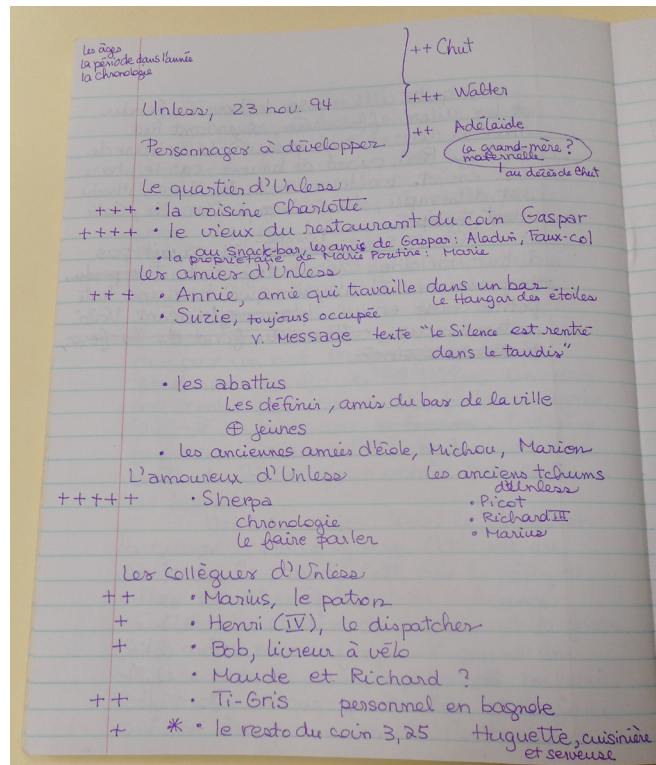 les âges
la période dans l'année
la chronologie
++ Chut
Unless, 23 nov. 94
+++ Walter
++ Adélaïde
Personnages à développer
la grand-mère ?
maternelle
au décès de Chut
Le quartier d'Unless
+++ • la voisine Charlotte
++++ • le vieux du restaurant du coin Gaspar
au snack-bar, les amis de Gaspar : Aladin, Faux-col
• la propriétaire de Marie Poutine : Marie
Les amies d'Unless
+++ • Annie, amie qui travaille dans un bar
le Hangar des étoiles
• Suzie, toujours occupée
V. Message texte "le Silence est rentré
dans le taudis"
• les abattus
Les définir, amis du bar de la ville
⊕ jeunes
• les anciennes amies d'école, Michou, Marion
L'amoureux d'Unless
+++++ • Sherpa
chronologie
le faire parler
les anciens tchums
d'Unless
• Picot
• Richard III
• Marius
Les collègues d'Unless
++ • Marius, le patron
+ • Henri (IV), le dispatcher
+ • Bob, livreur à vélo
• Maude et Richard ?
++ • Ti-Gris personnel en bagnole
+ * • le resto du coin 3,25 Huguette, cuisinière
et serveuse